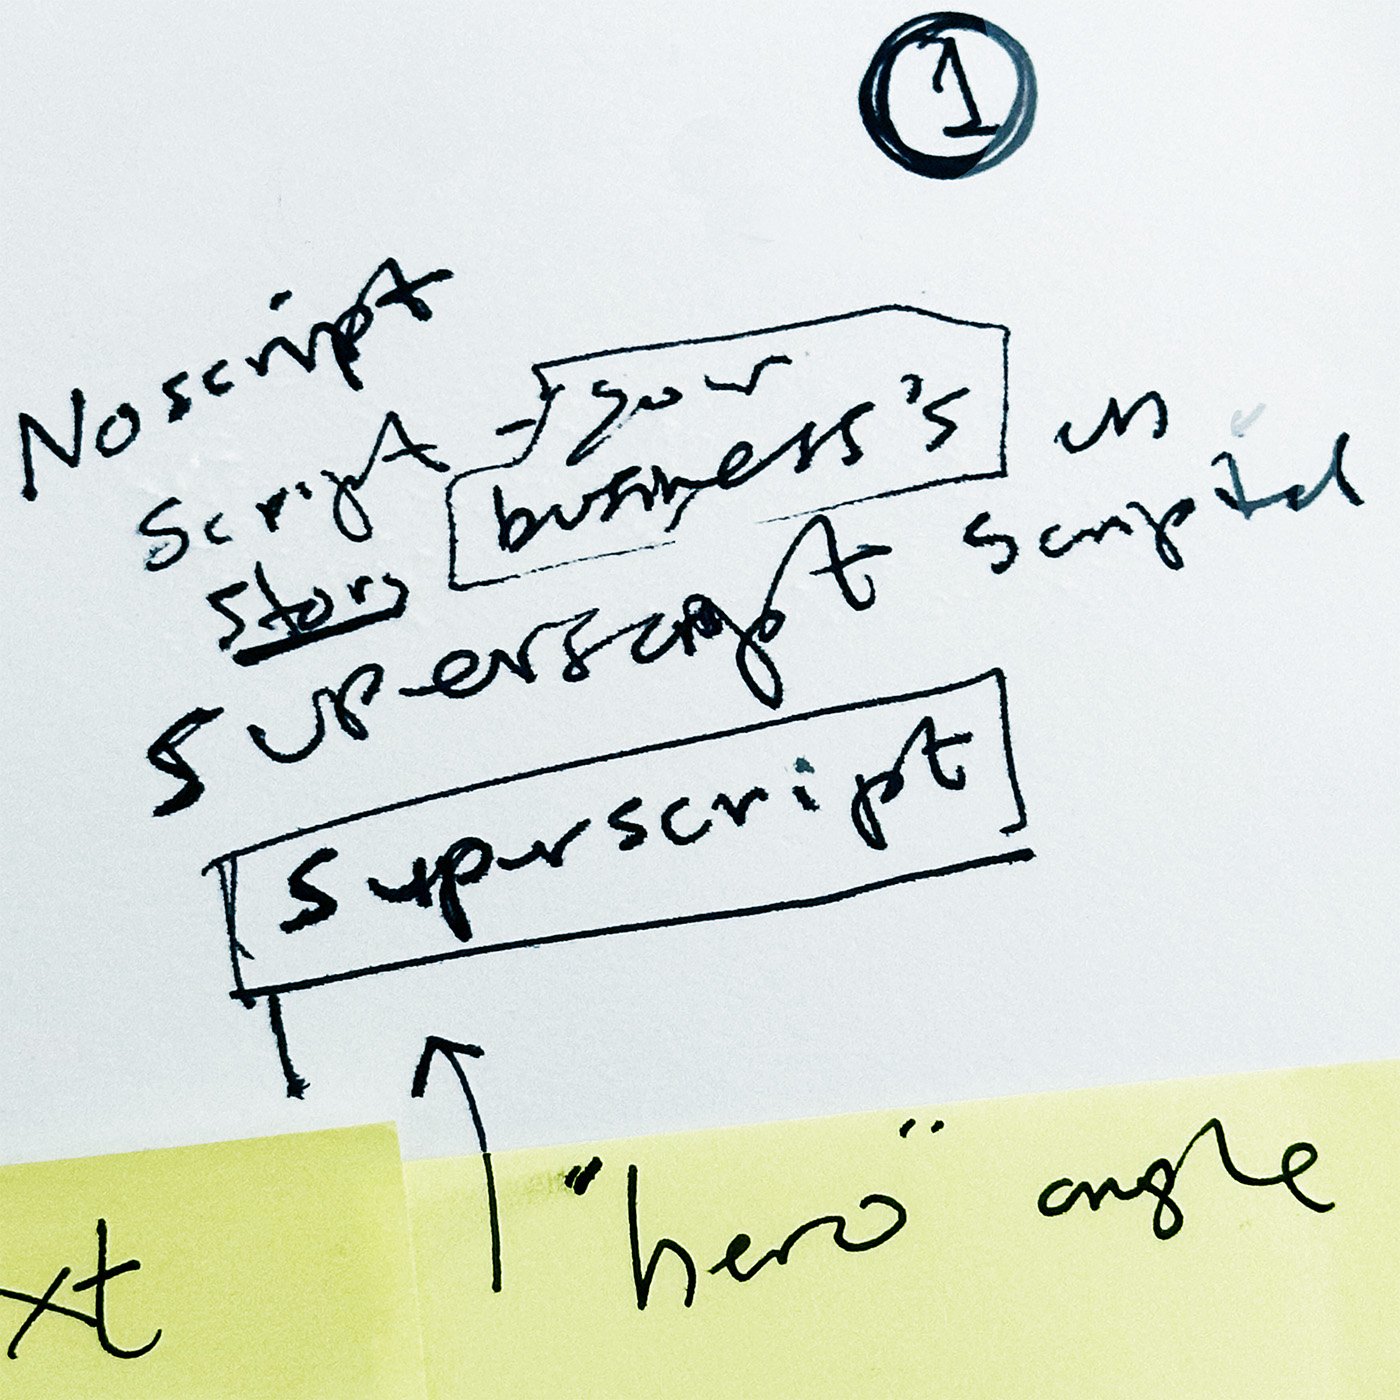 1
Noscript
Script - your
business's un
story scripted
superscript
superscript
"hero" angle
xt